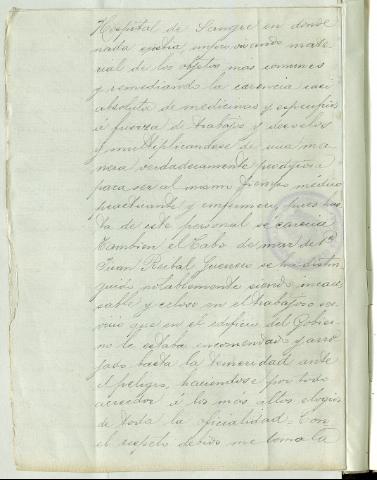 Hospital de Sangre en donde
nada existia, improvisando mate-
rial de los objetos mas comunes
y remediando la carencia casi
absoluta de medicinas y
á fuerza de trabajo y desvelos
y multiplicandose de una ma-
nera verdaderamente prodigiosa
para ser al mismo tiempo médico
practicante y enfermero, pues has-
ta de este personal se carecia
Tambien el Cabo de mar de 1ª
Juan Recibal se ha distin-
guido notablemente siendo incan-
sable y celoso en el trabajoso ser-
vicio que en el edificio del Gobier-
no le estaba encomendado y arro-
jado hasta la temeridad ante
el peligro, haciendose por todo
acreedor á los más altos elogios
de toda la oficialidad = Con
el respeto debido me tomo la